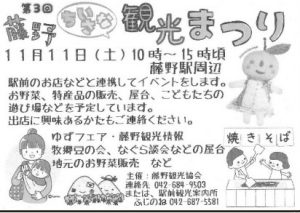 第3回
藤野 ちいさな 観光まつり
11月11日(土)10時〜15時頃
藤野駅周辺
駅前のお店などと連携してイベントをします。
お野菜、特産品の販売、屋台、こどもたちの
遊び場などを予定しています。
出店に興味あるかたもご連絡ください。
ゆずフェア・藤野観光情報
牧郷豆の会、なぐら談会などの屋台
地元のお野菜販売 など
焼きそば
主催：藤野観光協会
連絡先 042-684-9503
または、駅前観光案内所
ふじのね 042-687-5581